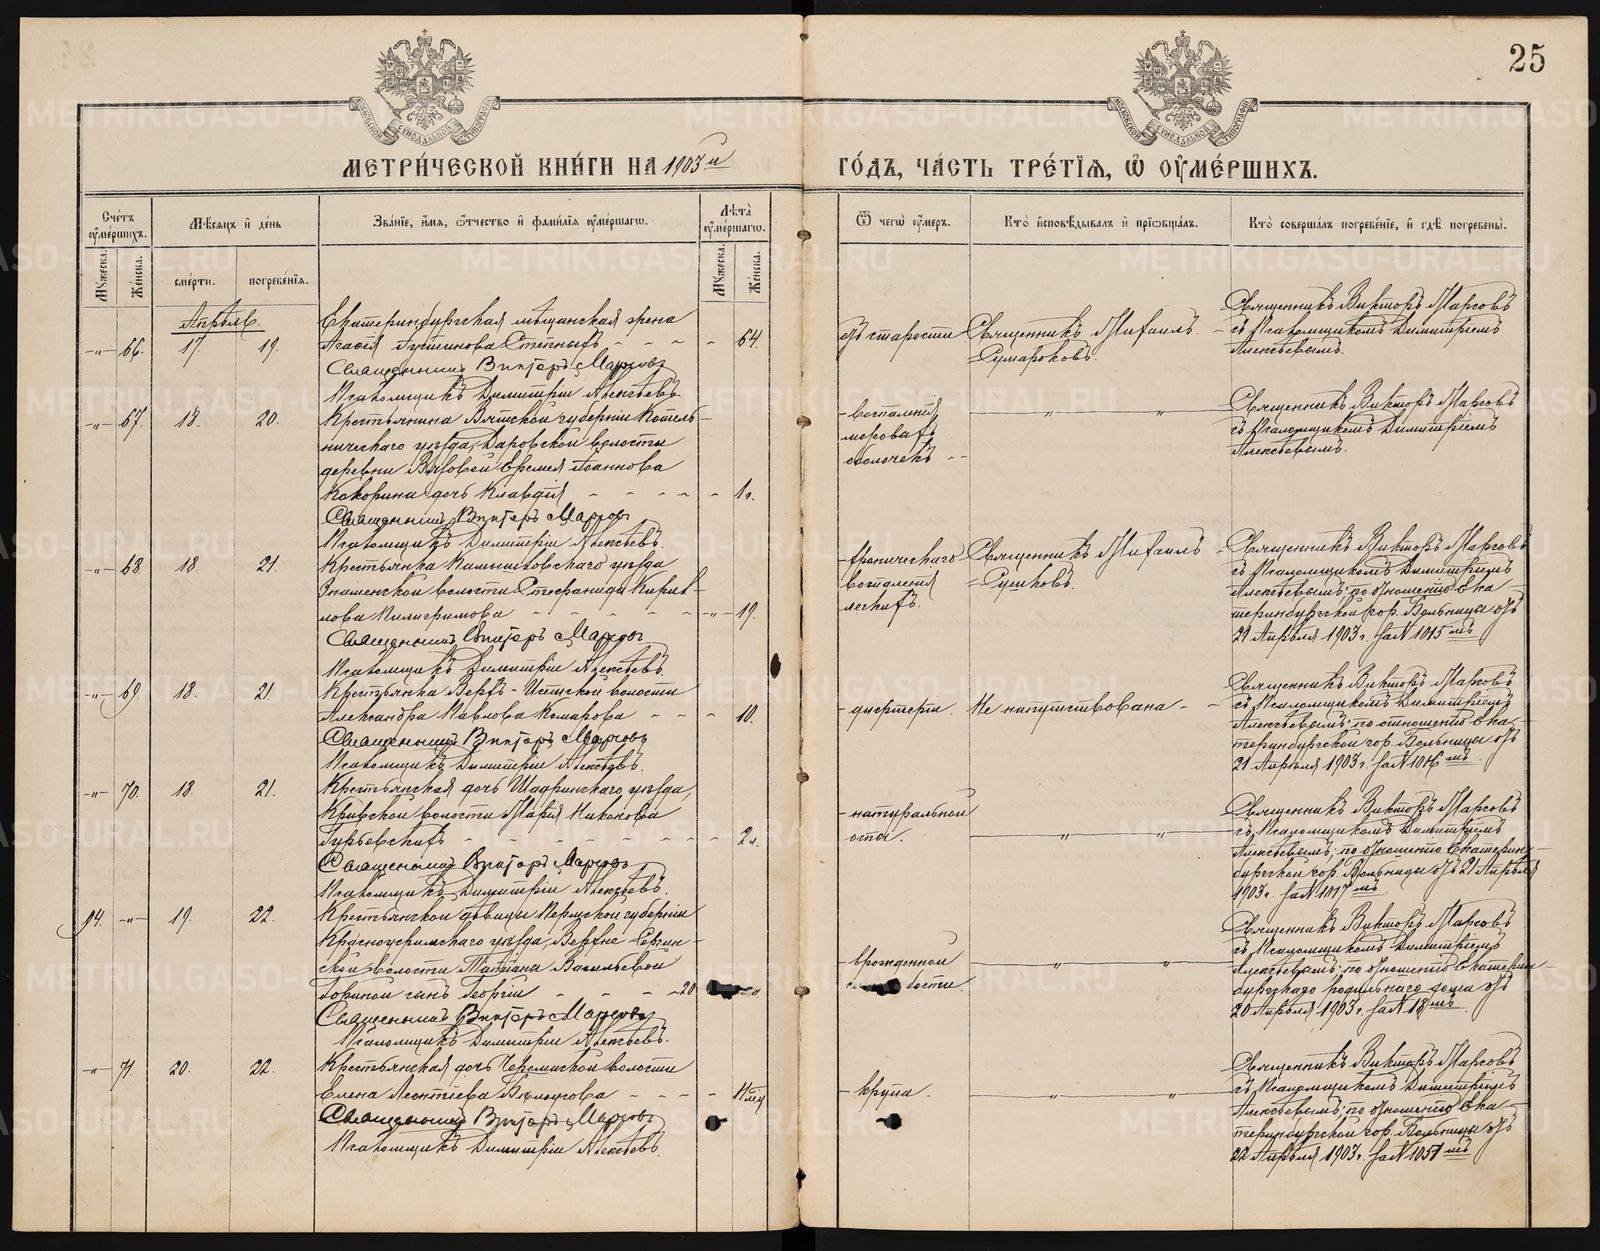 25
МЕТРИЧЕСКОЙ КНИГИ НА 1903 й
ГОДЪ, ЧАСТЬ ТРЕТІЯ, Ѡ ОУМЕРШИХЪ.
Счетъ оумершихъ.
Мѣсяцъ и день
Званіе, имя, отчество и фамилія оумершагѡ.
Лѣта оумершагѡ.
Ѿ чегѡ оумеръ.
Кто исповѣдывалъ и пріѡбщалъ.
Кто совершалъ погребеніе, и гдѣ погребены.
Мужеска.
Женска.
смерти.
погребенія.
Мужеска.
Женска.
Апрѣль.
-"- 66. 17. 19.
Екатеринбургская мѣщанская жена
Агафія Степныхъ - - - - 64.
Священникъ Викторъ Марковъ
Псаломщикъ Димитрій Алексѣевъ.
отъ старости
Священникъ Михаилъ
Сумароковъ.
Священникъ Викторъ Марковъ
съ Псаломщикомъ Димитріемъ
Алексѣевымъ.
-"- 67. 18. 20.
Крестьянина Вятской губерніи Котель-
ническаго уѣзда, Даровской волости
деревни Еремея Іоаннова
Кокорина дочь Клавдія - - - - 1 г.
Священникъ Викторъ Марковъ
Псаломщикъ Димитрій Алексѣевъ.
воспаленія
мозговыхъ
оболочекъ - -
" "
Священникъ Викторъ Марковъ
съ Псаломщикомъ Димитріемъ
Алексѣевымъ.
-"- 68. 18. 21.
Крестьянка Камышловскаго уѣзда
Знаменской волости Стефанида Кирил-
лова Пилигримова - - - - - " - 19.
Священникъ Викторъ Марковъ
Псаломщикъ Димитрій Алексѣевъ.
хроническаго
воспаленія
легкихъ.
Священникъ Михаилъ
Сушковъ.
Священникъ Викторъ Марковъ
съ Псаломщикомъ Димитріемъ
Алексѣевымъ; по отношенію Ека-
теринбургской гор. Больницы отъ
21 Апрѣля 1903 г. за N 1015 мъ
-"- 69. 18. 21
Крестьянка Верхъ-Исетской волости
Александра Павлова Комарова - - - 10.
Священникъ Викторъ Марковъ
Псаломщикъ Димитрій Алексѣевъ.
дифтерита.
Не напутствована - -
Священникъ Викторъ Марковъ
съ Псаломщикомъ Димитріемъ
Алексѣевымъ; по отношенію Ека-
теринбургской гор. Больницы отъ
21 Апрѣля 1903 г. за N 1016 мъ.
-"- 70. 18. 21.
Крестьянская дочь Шадринскаго уѣзда,
Кривской волости Марія Никонова
Гурьевскихъ - - - - - - - - 2 г.
Священникъ Викторъ Марковъ
Псаломщикъ Димитрій Алексѣевъ.
натуральной
оспы.
" "
Священникъ Викторъ Марковъ
съ Псаломщикомъ Димитріемъ
Алексѣевымъ; по отношенію Екатерин-
бургской гор. Больницы отъ 21 Апрѣля
1903 г. за N 1017 мъ.
94. -"- 19. 22.
Крестьянской дѣвицы Пермской губерніи
Красноуфимскаго уѣзда, Верхне-Сергин-
ской волости Татіаны Васильевой
сынъ Георгій - - - - 20
Священникъ Викторъ Марковъ
Псаломщикъ Димитрій Алексѣевъ.
врожденной
" "
Священникъ Викторъ Марковъ
съ Псаломщикомъ Димитріемъ
Алексѣевымъ; по отношенію Екатерин-
бургскаго родильнаго дома отъ
20 Апрѣля 1903 г. за N 18 мъ
-"- 71. 20. 22.
Крестьянская дочь волости
Елена Леонтіева - - - - 11 мѣс
Священникъ Викторъ Марковъ
Псаломщикъ Димитрій Алексѣевъ.
крупа.
" "
Священникъ Викторъ Марковъ
съ Псаломщикомъ Димитріемъ
Алексѣевымъ; по отношенію Ека-
теринбургской гор. Больницы отъ
22 Апрѣля 1903 г. за N 1051 мъ
METRIKI.GASO-URAL.RU